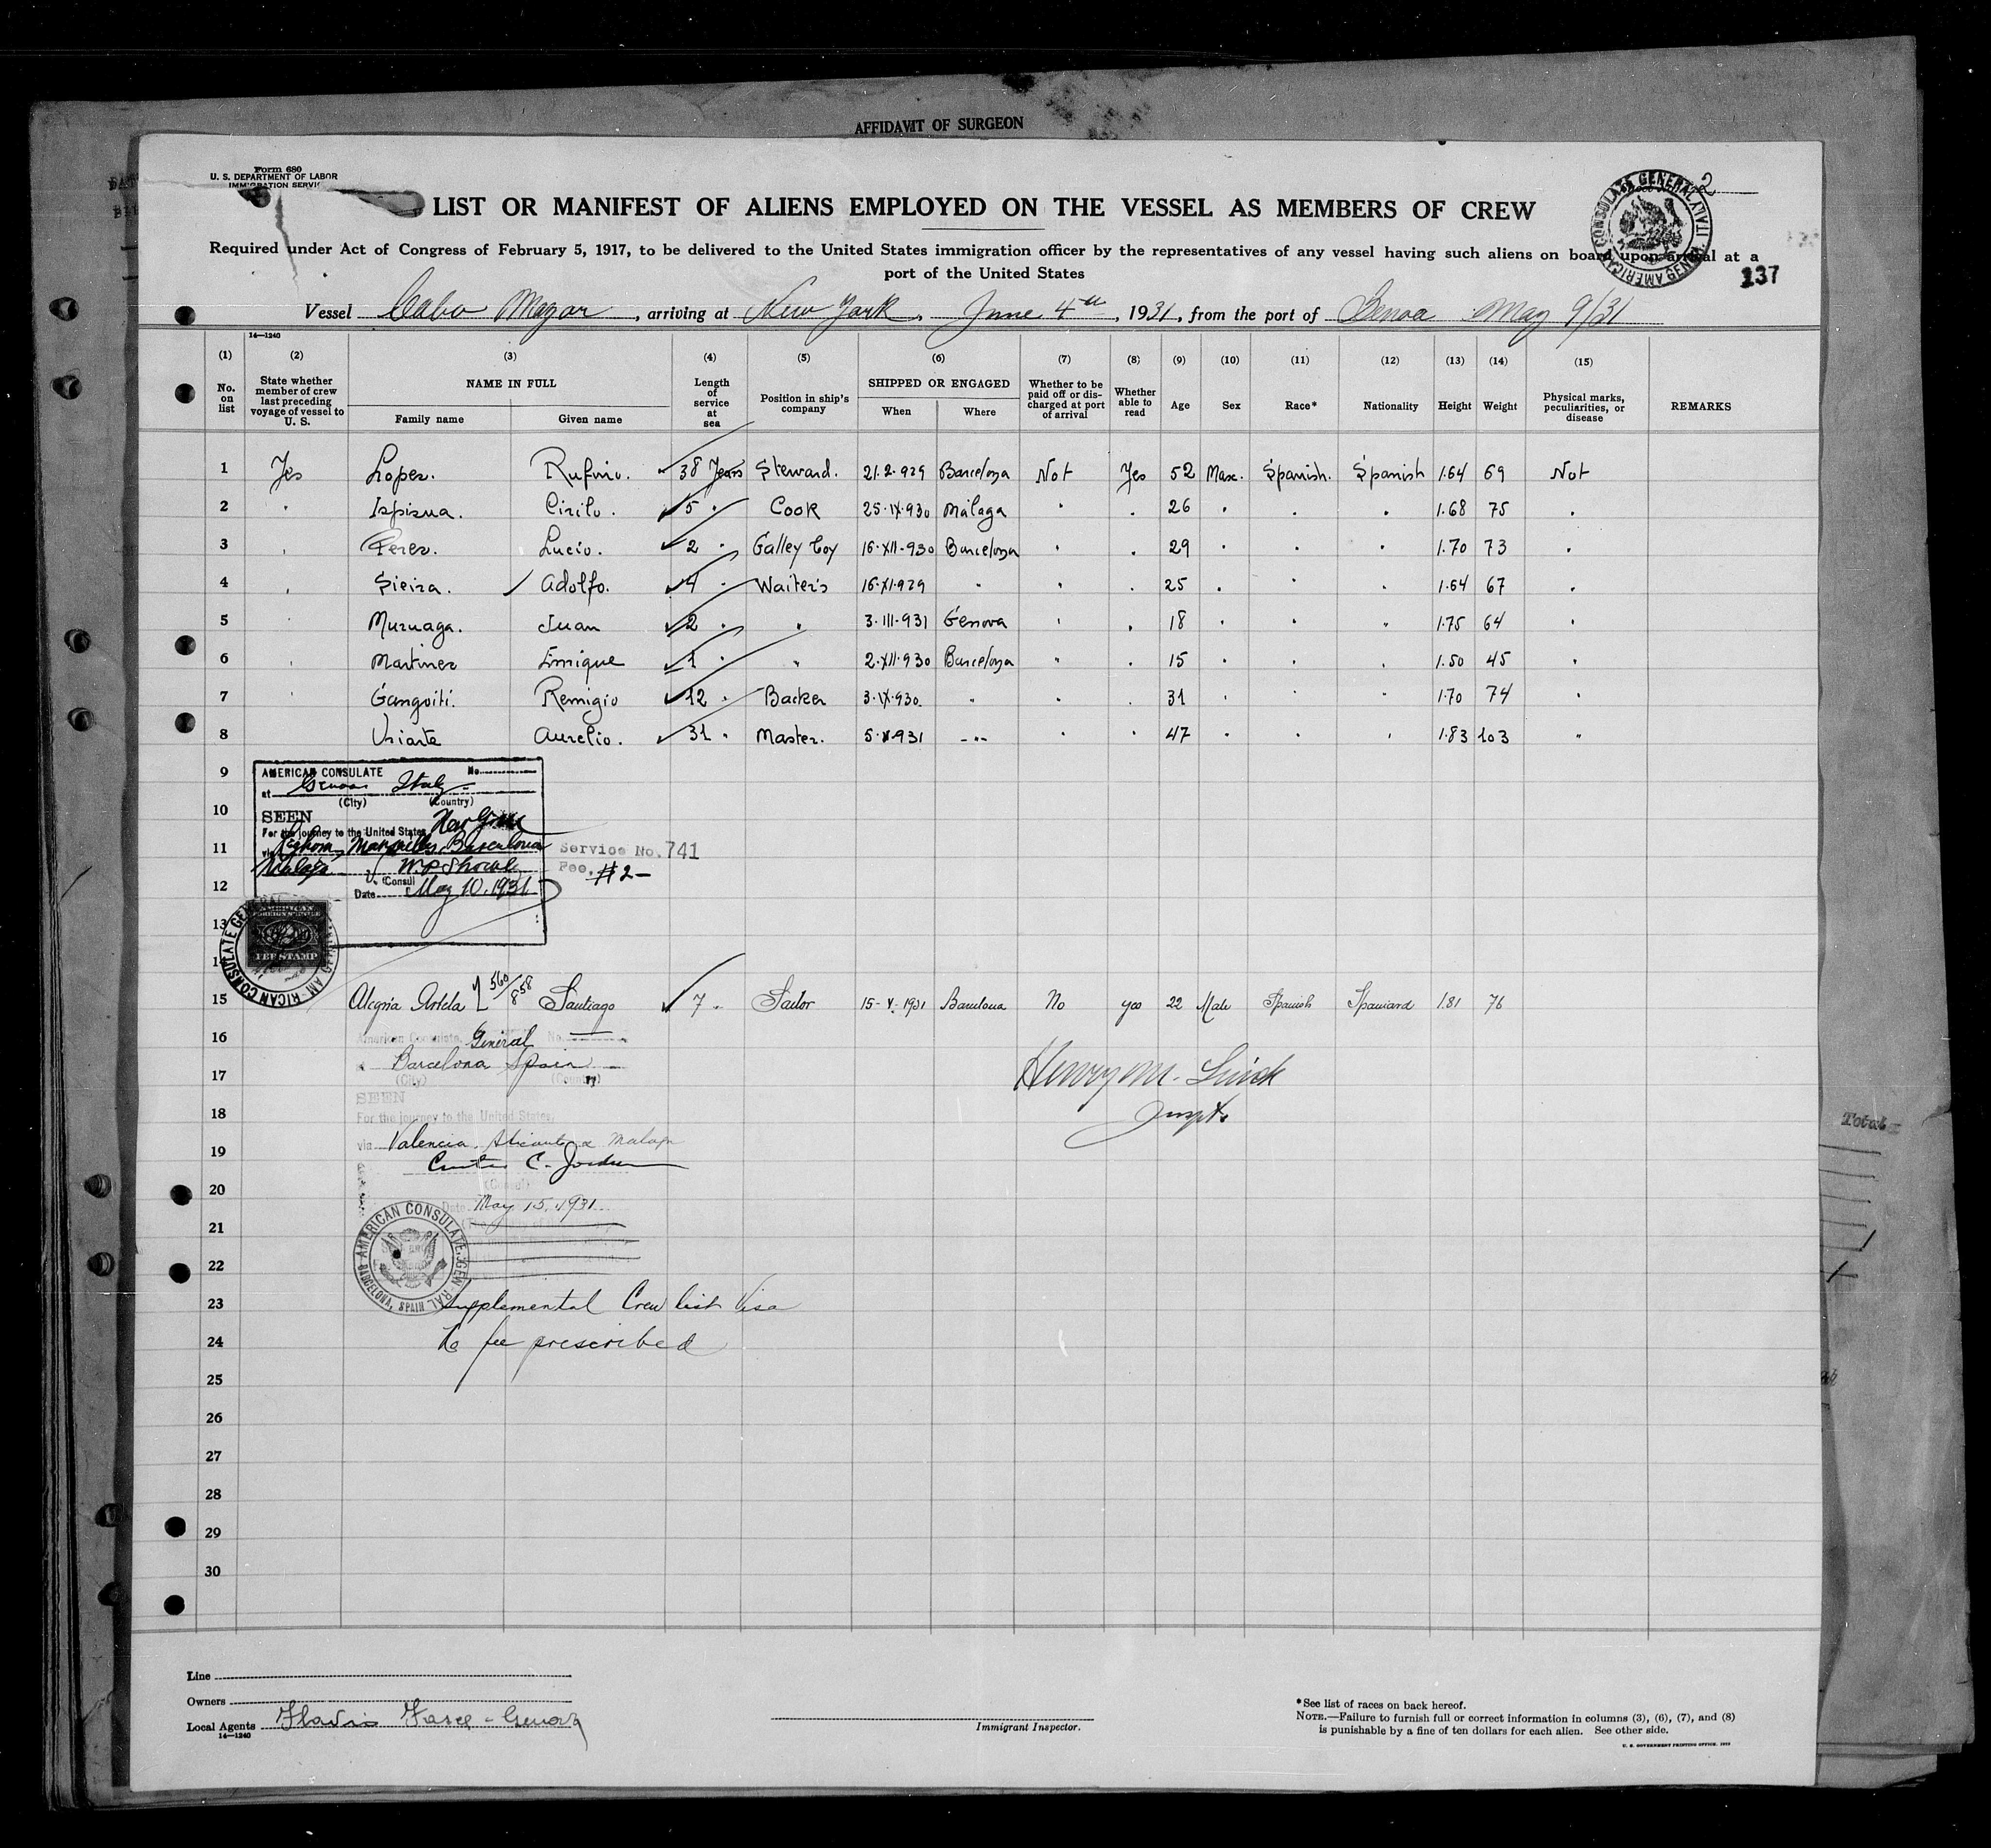 AFFIDAVIT OF SURGEON
Form 680
U. S. DEPARTMENT OF LABOR
IMMIGRATION SERVIC
2
LIST OR MANIFEST OF ALIENS EMPLOYED ON THE VESSEL AS MEMBERS OF CREW
Required under Act of Congress of February 5, 1917, to be delivered to the United States immigration officer by the representatives of any vessel having such aliens on board upon arrival at a
port of the United States
AMERICAN CONSULATE GENERAL ITALY
137
Vessel Cabo Mazor, arriving at New York, June 4th, 1931, from the port of Genoa May 9/31
14—1240
(1) (2) (3) (4) (5) (6) (7) (8) (9) (10) (11) (12) (13) (14) (15)
No. on list State whether member of crew last preceding voyage of vessel to U. S. NAME IN FULL Family name Given name Length of service at sea Position in ship's company SHIPPED OR ENGAGED When Where Whether to be paid off or discharged at port of arrival Whether able to read Age Sex Race* Nationality Height Weight Physical marks, peculiarities, or disease REMARKS
1 Yes Lopez. Rufino. 38 Years Steward. 21.2.929 Barcelona Not Yes 52 Masc. Spanish. Spanish 1.64 69 Not
2 " Ispizua. Cirilo. 5 " Cook 25.IX.930 Málaga " " 26 " " " 1.68 75 "
3 " Perez. Lucio. 2 " Galley boy 16.XII.930 Barcelona " " 29 " " " 1.70 73 "
4 " Sieira. Adolfo. 4 " Waiter's 16.XI.929 " " " 25 " " " 1.64 67 "
5 " Muruaga. Juan 2 " " 3.III.931 Genova " " 18 " " " 1.75 64 "
6 " Martinez Enrique 1 " " 2.XII.930 Barcelona " " 15 " " " 1.50 45 "
7 " Gangoiti. Remigio 12 " Backer 3.IX.930. " " " 31 " " " 1.70 74 "
8 Uriarte Aurelio. 31 " Master. 5.V.931 " " " 47 " " " 1.83 103 "
9
10
11
12
13
14
AMERICAN CONSULATE No.
at Genoa Italy
(City) (Country)
SEEN
For the journey to the United States
via Leghorn, Marseilles, Barcelona
Malaga
Consul
Date May 10, 1931
Service No. 741
Fee, #2—
FEE STAMP
AMERICAN CONSULATE GENERAL
15 Alegria Artela 560/858 Santiago 7 " Sailor 15-V-1931 Barcelona No yes 22 Male Spanish Spaniard 1.81 76
16
American Consulate General No.
Barcelona Spain
(City) (Country)
17
Henry M.
Inspt.
SEEN
18
For the journey to the United States,
via Valencia, Alicante & Malaga
19
Curtis C. Jordan
(Consul)
20
Date May 15, 1931
21
AMERICAN CONSULATE GENERAL BARCELONA, SPAIN
22
23 Supplemental Crew list Visa
24 No fee prescribed
25
26
27
28
29
30
Total
Line
Owners
Local Agents Flavio Fasce - Genova
14—1240
Immigrant Inspector.
*See list of races on back hereof.
NOTE.—Failure to furnish full or correct information in columns (3), (6), (7), and (8)
is punishable by a fine of ten dollars for each alien. See other side.
U. S. GOVERNMENT PRINTING OFFICE